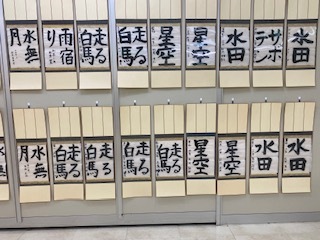 水無月
雨宿り
走る白馬
走る白馬
星空
星空
水田
サボテン
水田
水無月
走る白馬
走る白馬
走る白馬
走る白馬
星空
星空
水田
水田